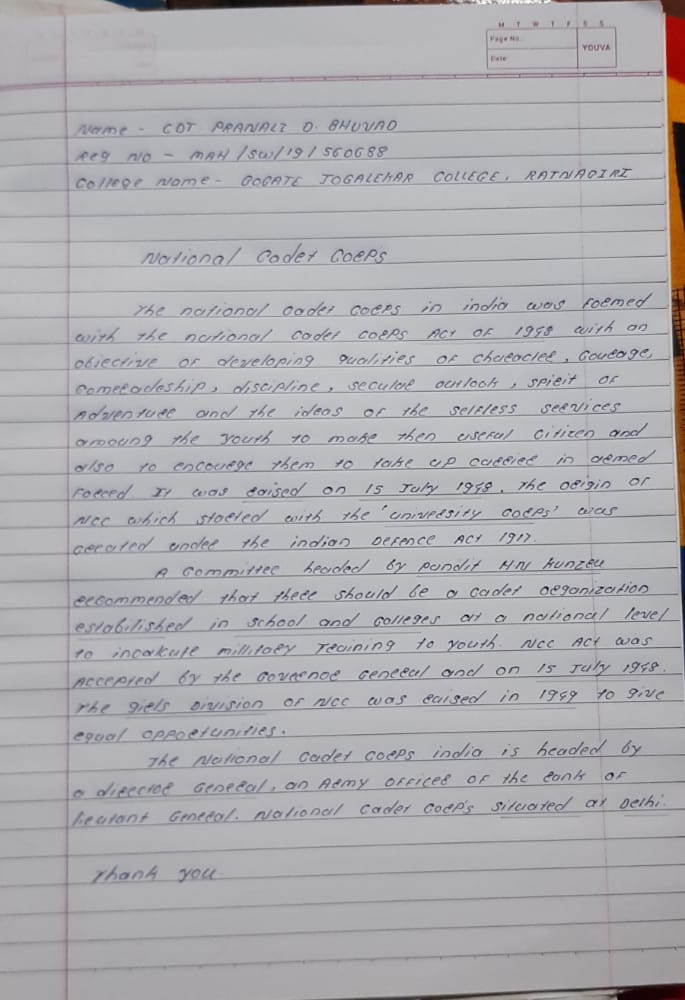 M T W T F S S
Page No.:
YOUVA
Date:
Name - CDT PRANALI D. BHUVAD
Reg No - MAH/SW/19/560688
College Name - GOGATE JOGALEKAR COLLEGE, RATNAGIRI
National Cadet Coerps
The national cadet coerps in india was foermed
with the national cadet coerps Act of 1948 with an
objective of developing qualities of character, Courage,
Comeradeship, discipline, secular outlook, spirit of
Adventure and the ideas of the selfless services
amoung the youth to make then useful citizen and
also to encourege them to take up carrier in armed
Forced. It was raised on 15 July 1948. The origin of
NCC which started with the 'university corps' was
created under the indian Defence Act 1917.
A committee headed by Pandit HN Kunzru
recommended that there should be a cadet organization
estabilished in school and colleges at a national level
to incalcute millitary Training to youth. NCC Act was
Accepted by the Governor General and on 15 July 1948.
The girls Division of NCC was raised in 1949 to give
equal opportunities.
The National Cadet Corps india is headed by
a director General, an Army officer of the rank of
lieutant General. National Cadet Corp's situated at Delhi.
Thank you